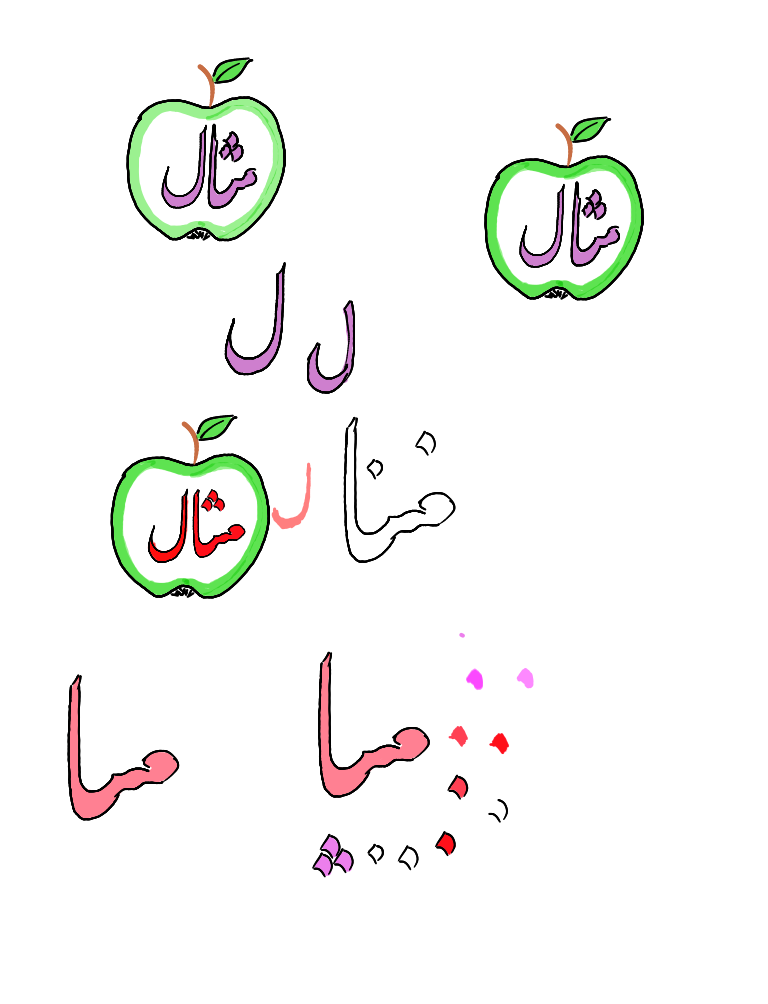 مثال
مثال
ل ل
مثال
ل
منا
ما
ما